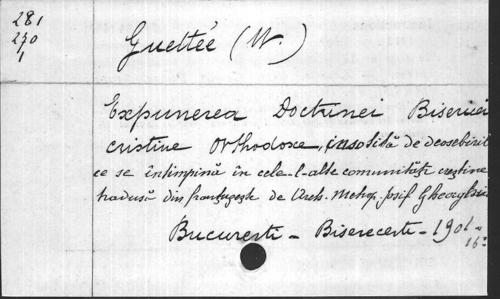 281
270
1
Guettée (W.)
Expunerea Doctrinei Bisericei
cristine Orthodoxe, însoțită de deosebiril
ce se întimpină în cele-l-alte comunități creștine
tradusă din franțuzește de Iosif Gheorghi
București - Biserecesti - 1901 -
16°